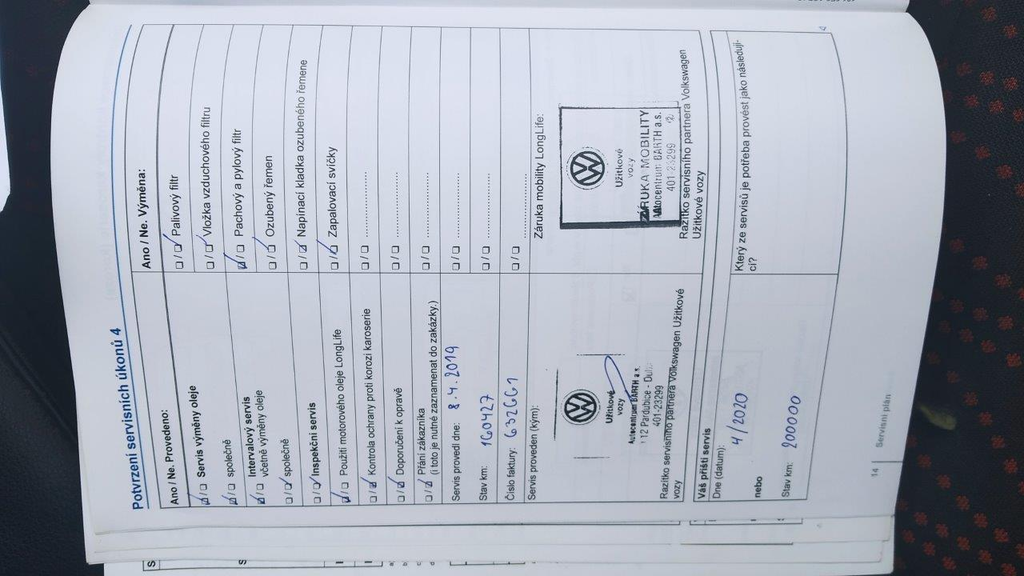 Potvrzení servisních úkonů 4
Ano / Ne. Provedeno:
Servis výměny oleje
společně
Intervalový servis
včetně výměny oleje
společně
Inspekční servis
Použití motorového oleje LongLife
Kontrola ochrany proti korozi karoserie
Doporučení k opravě
Přání zákazníka
(I toto je nutné zaznamenat do zakázky.)
Servis provedl dne: 8.4.2019
Stav km: 160427
Číslo faktury: 632661
Servis proveden (kým):
Užitkové
vozy
Autocentrum BARTH a.s.
112 Pardubice - Dub
401-23299
Razítko servisního partnera Volkswagen Užitkové
vozy
Ano / Ne. Výměna:
Palivový filtr
Vložka vzduchového filtru
Pachový a pylový filtr
Ozubený řemen
Napínací kladka ozubeného řemene
Zapalovací svíčky
Záruka mobility LongLife:
Užitkové
vozy
ZÁRUKA MOBILITY
Autocentrum BARTH a.s.
401-23299
Razítko servisního partnera Volkswagen
Užitkové vozy
Váš příští servis
Dne (datum): 4/2020
nebo
Stav km: 200000
Který ze servisů je potřeba provést jako následují-
cí?
14 Servisní plán